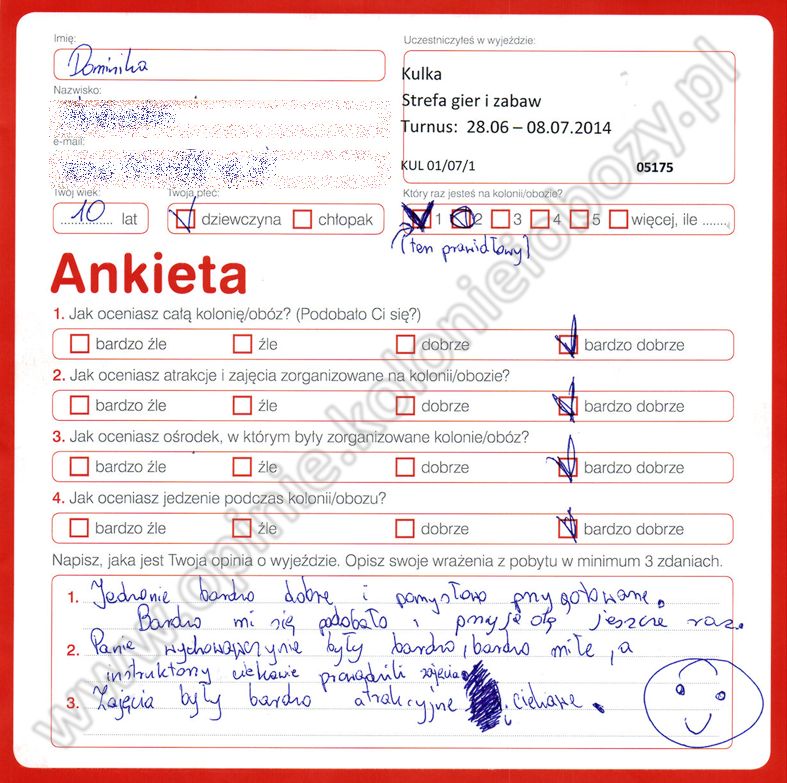 Imię:
Dominika
Uczestniczyłeś w wyjeździe:
Kulka
Strefa gier i zabaw
Turnus: 28.06 – 08.07.2014
KUL 01/07/1 05175
Nazwisko:
e-mail:
Twój wiek:
10 lat
Twoja płeć:
dziewczyna chłopak
Który raz jesteś na kolonii/obozie?
1 2 3 4 5 więcej, ile .......
(ten prawidłowy)
Ankieta
1. Jak oceniasz całą kolonię/obóz? (Podobało Ci się?)
bardzo źle źle dobrze bardzo dobrze
2. Jak oceniasz atrakcje i zajęcia zorganizowane na kolonii/obozie?
bardzo źle źle dobrze bardzo dobrze
3. Jak oceniasz ośrodek, w którym były zorganizowane kolonie/obóz?
bardzo źle źle dobrze bardzo dobrze
4. Jak oceniasz jedzenie podczas kolonii/obozu?
bardzo źle źle dobrze bardzo dobrze
Napisz, jaka jest Twoja opinia o wyjeździe. Opisz swoje wrażenia z pobytu w minimum 3 zdaniach.
1. Jedzonie bardzo dobre i pomysłowo przygotowane.
Bardzo mi się podobało i przyjadę jeszcze raz.
2. Panie wychowawczynie były bardzo, bardzo miłe, a
instruktorzy ciekawie prowadzili zajęcia.
3. Zajęcia były bardzo atrakcyjne i ciekawe.
www.opinie.kolonieiobozy.pl